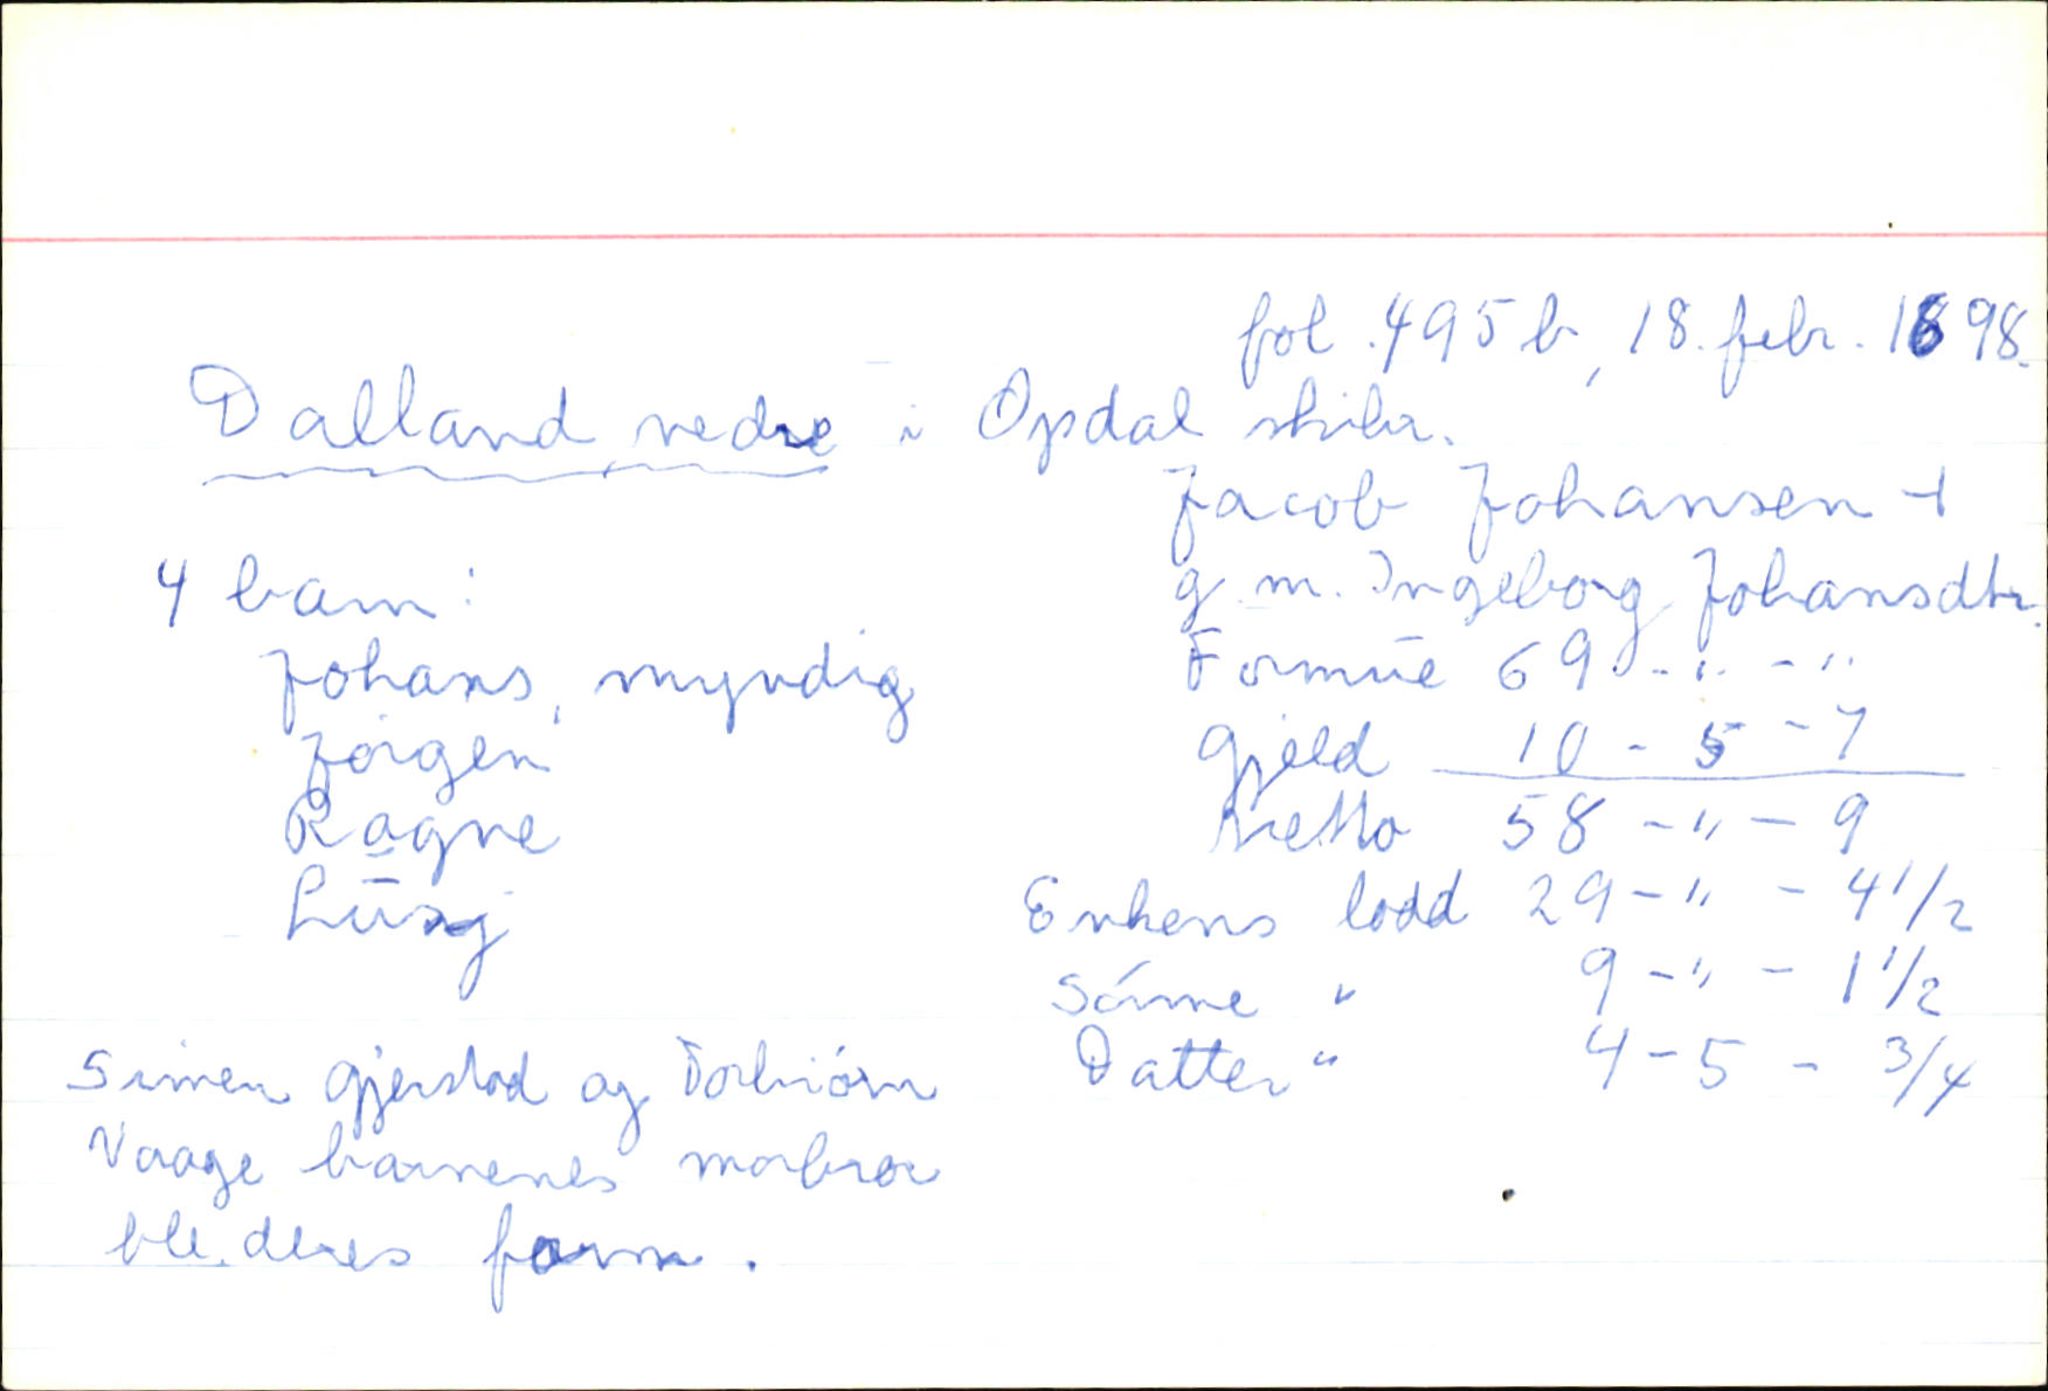 fol. 495 b, 18. febr. 1698.
Dalland nedre i Opdal skibr.
Jacob Johansen †
g. m. Ingeborg Johansdtr.
4 barn:
Johans, myndig
Jörgen
Ragne
Lusy
Formue 69 - " - "
Gjeld 10 - 5 - 7
Netto 58 - " - 9
Enkens lodd 29 - " - 4 1/2
Sönne " 9 - " - 1 1/2
Datter " 4 - 5 - 3/4
Simen Gjerstad og Torbiörn
Vaage barnenes morbror
ble deres form.